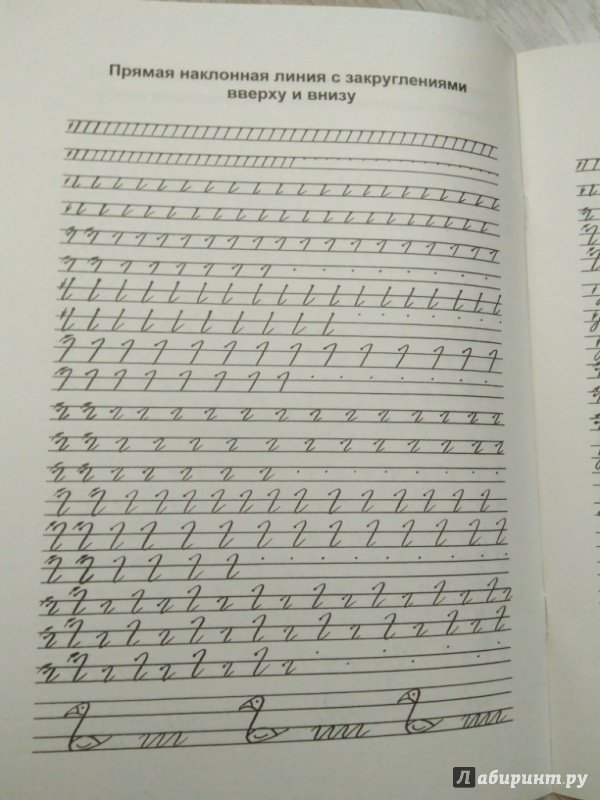 Прямая наклонная линия с закруглениями
вверху и внизу
Лабиринт.ру